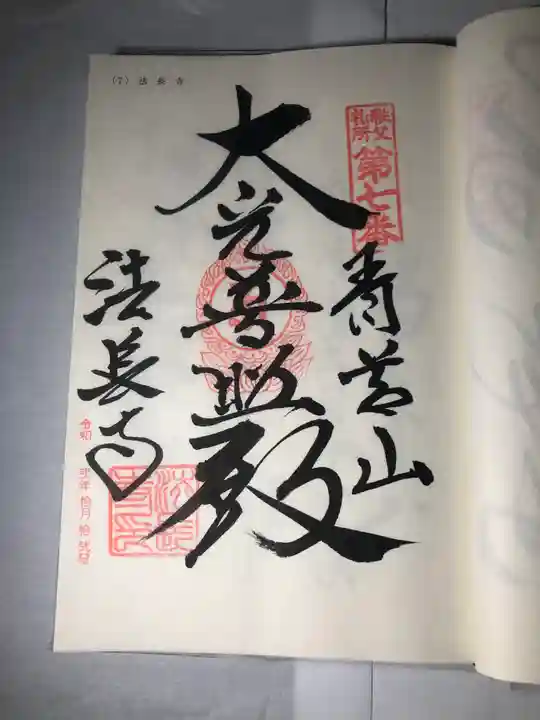 (7) 法長寺
秩父
札所
第七番
青苔山
大光普照殿
法長寺
令和